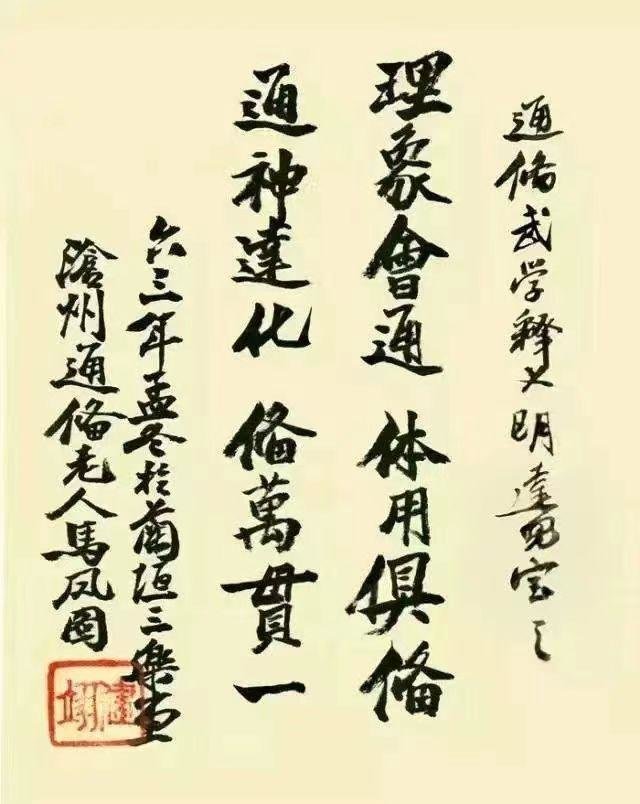 通俻武学釋义明達兒宝之
理象會通 体用俱俻
通神達化 俻萬貫一
六三年孟冬於蘭垣三樂堂
滄州通俻老人馬凤图
健翊